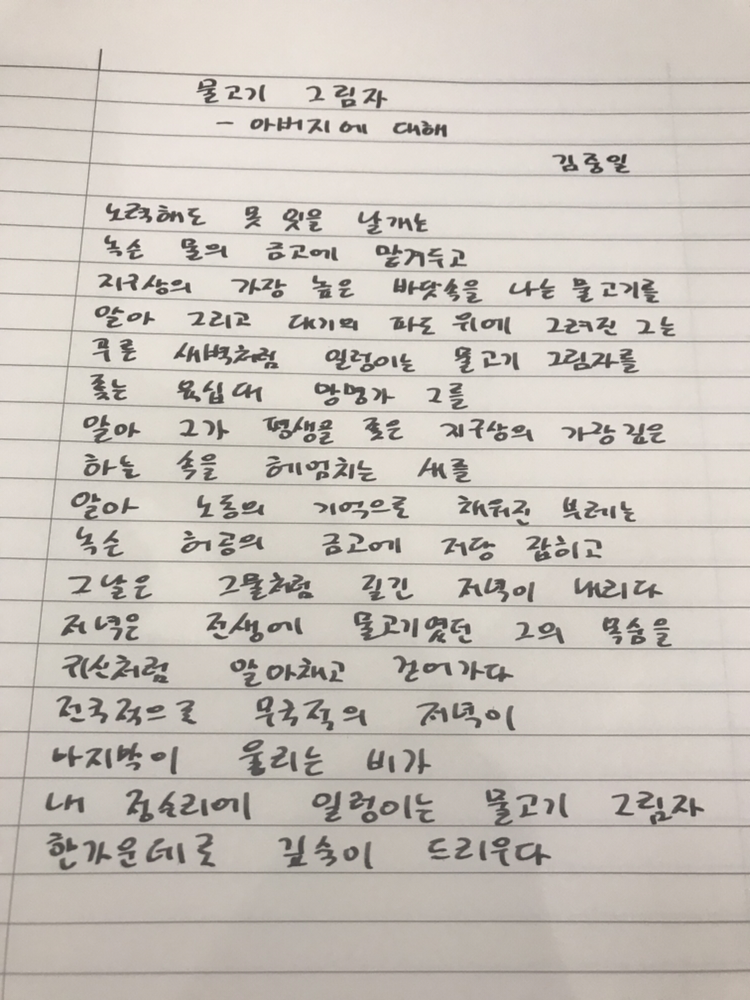 물고기 그림자
- 아버지에 대해
김중일
노력해도 못 잊을 날개는
녹슨 물의 금고에 맡겨두고
지구상의 가장 높은 바닷속을 나는 물고기를
알아 그리고 대기의 파도 위에 그려진 그는
푸른 새벽처럼 일렁이는 물고기 그림자를
좇는 육십대 망명가 그를
알아 그가 평생을 좇은 지구상의 가장 깊은
하늘 속을 헤엄치는 새를
알아 노동의 기억으로 채워진 부레는
녹슨 허공의 금고에 저당 잡히고
그날은 그물처럼 질긴 저녁이 내리다
저녁은 전생에 물고기였던 그의 목숨을
귀신처럼 알아채고 걷어가다
전국적으로 무국적의 저녁이
나지막이 울리는 비가
내 정수리에 일렁이는 물고기 그림자
한가운데로 깊숙이 드리우다